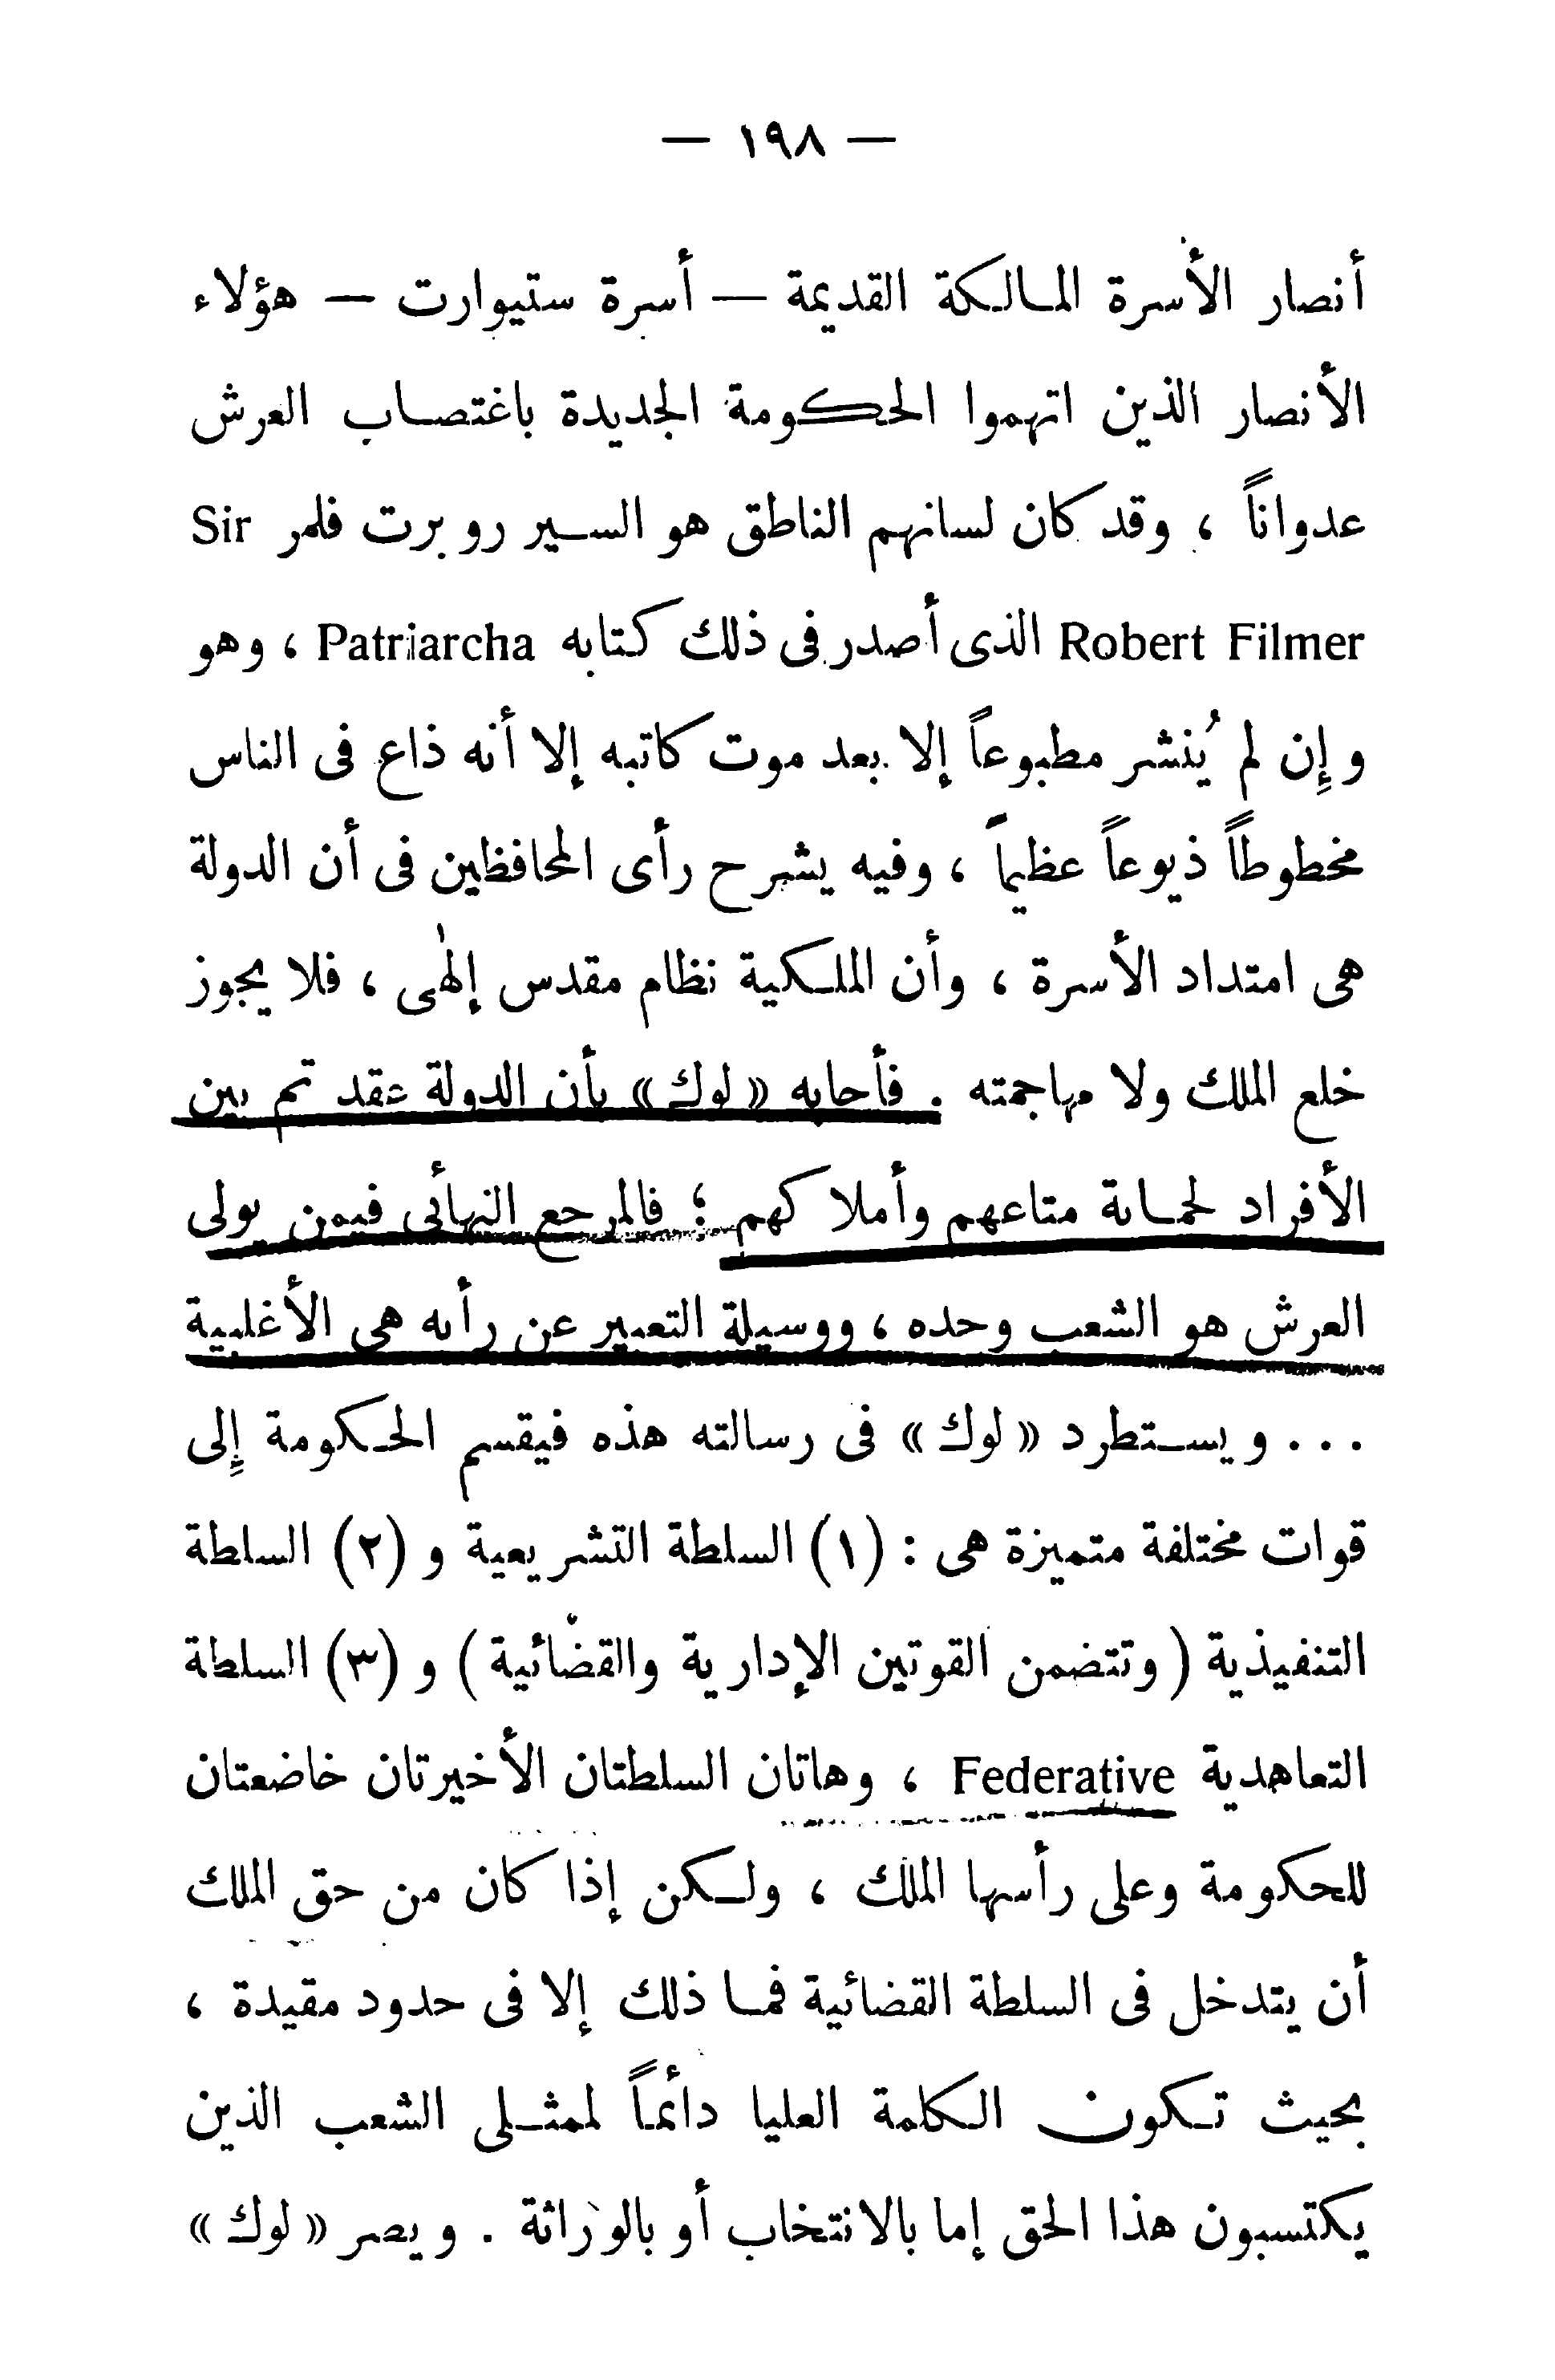 — ١٩٨ —
أنصار الأسرة المالكة القديمة — أسرة ستيوارت — هؤلاء
الأنصار الذين اتهموا الحكومة الجديدة باغتصاب العرش
عدواناً ، وقد كان لسانهم الناطق هو السير روبرت فلمر Sir
Robert Filmer الذى أصدر فى ذلك كتابه Patriarcha ، وهو
وإِن لم يُنشر مطبوعاً إلا بعد موت كاتبه إلا أنه ذاع فى الناس
مخطوطاً ذيوعاً عظيماً ، وفيه يشرح رأى المحافظين فى أن الدولة
هى امتداد الأسرة ، وأن الملكية نظام مقدس إلٰهى ، فلا يجوز
خلع الملك ولا مهاجمته . فأجابه « لوك » بأن الدولة عقد تم بين
الأفراد لحماية متاعهم وأملاكهم ؛ فالمرجع النهائى فيمن يولى
العرش هو الشعب وحده ، ووسيلة التعبير عن رأيه هى الأغلبية
. . . ويستطرد « لوك » فى رسالته هذه فيقسم الحكومة إِلى
قوات مختلفة متميزة هى : (١) السلطة التشريعية و (٢) السلطة
التنفيذية ( وتتضمن القوتين الإدارية والقضائية ) و (٣) السلطة
التعاهدية Federative ، وهاتان السلطتان الأخيرتان خاضعتان
للحكومة وعلى رأسها الملك ، ولكن إذا كان من حق الملك
أن يتدخل فى السلطة القضائية فما ذلك إلا فى حدود مقيدة ،
بحيث تكون الكلمة العليا دائماً لممثلى الشعب الذين
يكتسبون هذا الحق إما بالانتخاب أو بالوراثة . ويصر « لوك »